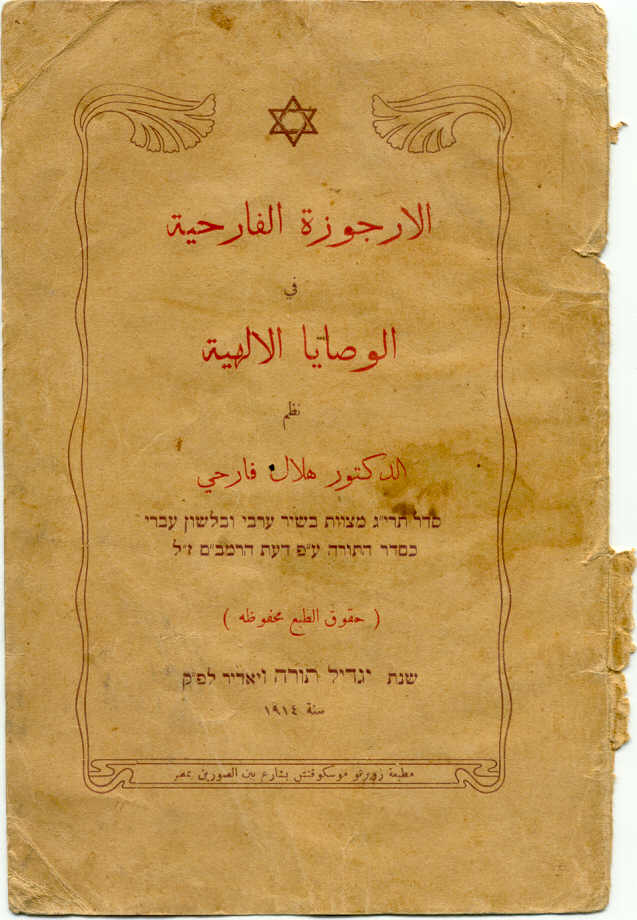 الارجوزة الفارحية
في
الوصايا الالهية
نظم
الدكتور هلال فارحي
סדר תרי״ג מצוות בשיר ערבי ובלשון עברי
כסדר התורה ע״פ דעת הרמב״ם ז״ל
( حقوق الطبع محفوظه )
שנת יגדיל תורה ויאדיר לפ״ק
سنة ١٩١٤
مطبعة موسكوفتش بشارع بين الصورين بمصر